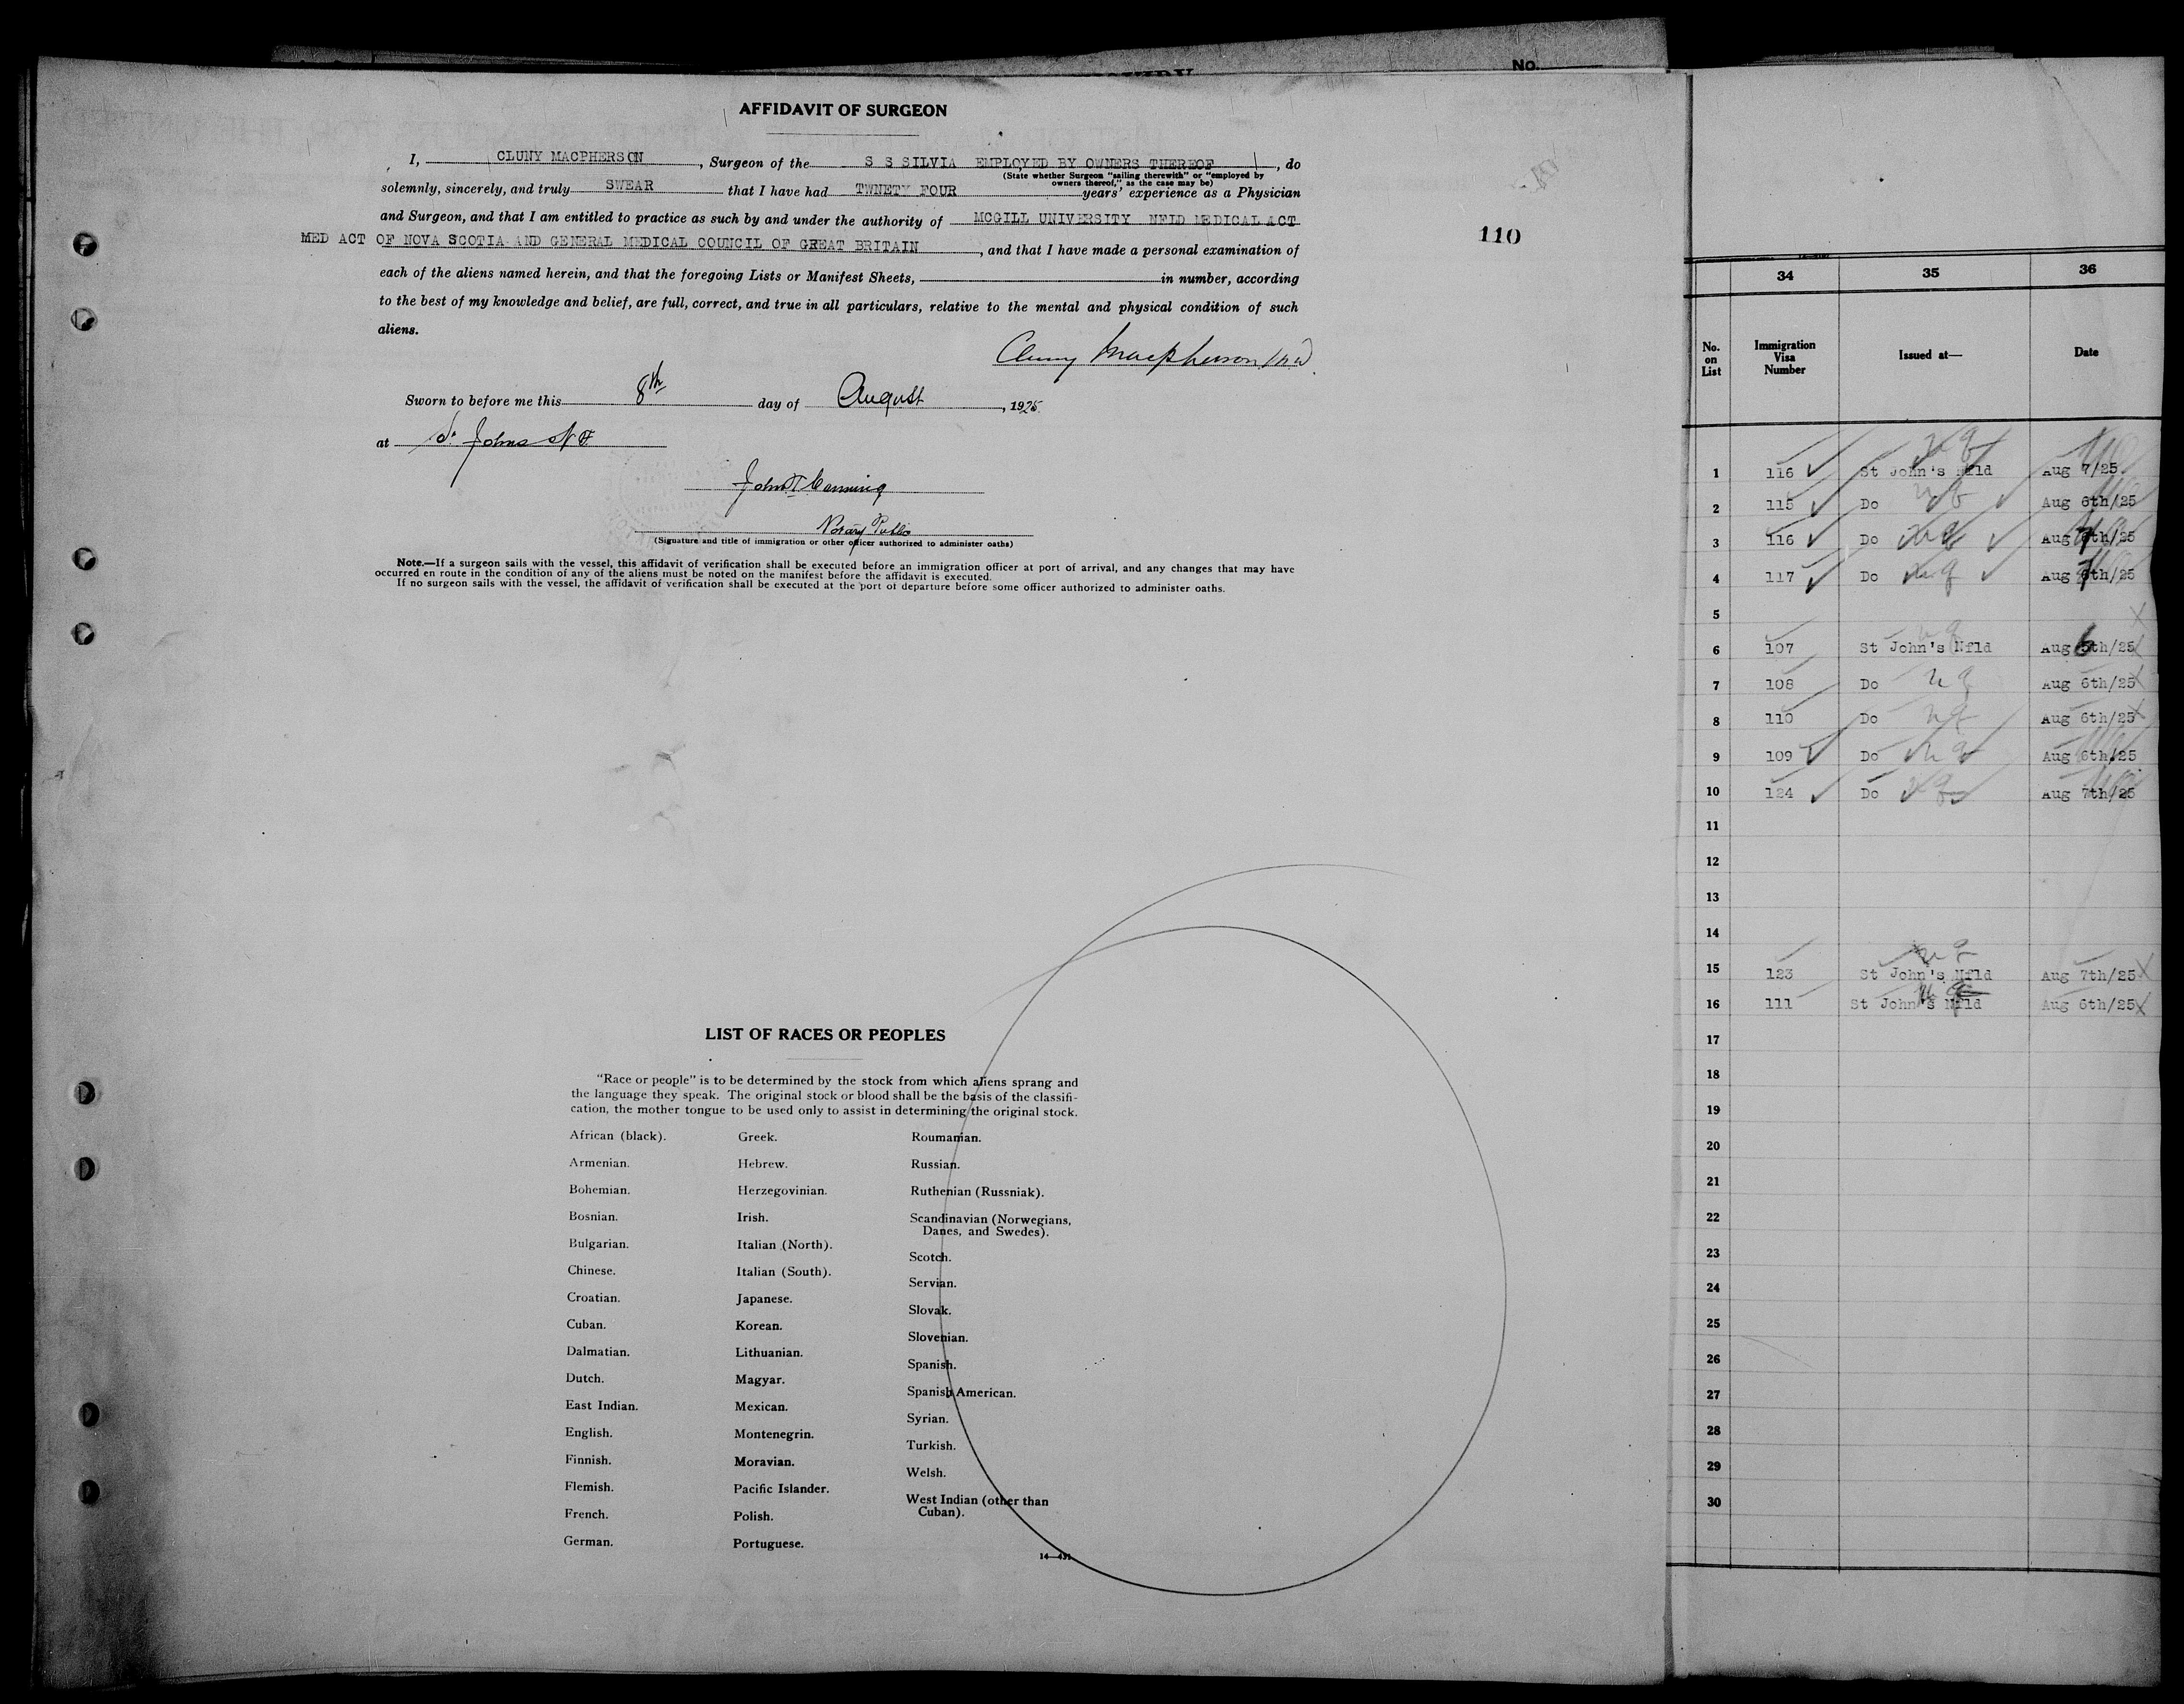 No.
AFFIDAVIT OF SURGEON
I, CLUNY MACPHERSON, Surgeon of the S S SILVIA EMPLOYED BY OWNERS THEREOF, do
(State whether Surgeon "sailing therewith" or "employed by
owners thereof," as the case may be)
solemnly, sincerely, and truly SWEAR that I have had TWNETY FOUR years' experience as a Physician
and Surgeon, and that I am entitled to practice as such by and under the authority of MCGILL UNIVERSITY NFLD MEDICAL ACT
MED ACT OF NOVA SCOTIA AND GENERAL MEDICAL COUNCIL OF GREAT BRITAIN, and that I have made a personal examination of
each of the aliens named herein, and that the foregoing Lists or Manifest Sheets, in number, according
to the best of my knowledge and belief, are full, correct, and true in all particulars, relative to the mental and physical condition of such
aliens.
Cluny Macpherson M.D.
Sworn to before me this 8th day of August, 1925
at St Johns NF
Notary Public
(Signature and title of immigration or other officer authorized to administer oaths)
Note.—If a surgeon sails with the vessel, this affidavit of verification shall be executed before an immigration officer at port of arrival, and any changes that may have
occurred en route in the condition of any of the aliens must be noted on the manifest before the affidavit is executed.
If no surgeon sails with the vessel, the affidavit of verification shall be executed at the port of departure before some officer authorized to administer oaths.
110
LIST OF RACES OR PEOPLES
"Race or people" is to be determined by the stock from which aliens sprang and
the language they speak. The original stock or blood shall be the basis of the classifi-
cation, the mother tongue to be used only to assist in determining the original stock.
African (black).
Armenian.
Bohemian.
Bosnian.
Bulgarian.
Chinese.
Croatian.
Cuban.
Dalmatian.
Dutch.
East Indian.
English.
Finnish.
Flemish.
French.
German.
Greek.
Hebrew.
Herzegovinian.
Irish.
Italian (North).
Italian (South).
Japanese.
Korean.
Lithuanian.
Magyar.
Mexican.
Montenegrin.
Moravian.
Pacific Islander.
Polish.
Portuguese.
Roumanian.
Russian.
Ruthenian (Russniak).
Scandinavian (Norwegians,
Danes, and Swedes).
Scotch.
Servian.
Slovak.
Slovenian.
Spanish.
Spanish American.
Syrian.
Turkish.
Welsh.
West Indian (other than
Cuban).
14—431
34 35 36
No. on List Immigration Visa Number Issued at— Date
1 116 St John's Nfld Aug 7/25
2 115 Do Aug 6th/25
3 116 Do Aug 7th/25
4 117 Do Aug 7th/25
5
6 107 St John's Nfld Aug 6th/25
7 108 Do Aug 6th/25
8 110 Do Aug 6th/25
9 109 Do Aug 6th/25
10 124 Do Aug 7th/25
11
12
13
14
15 123 St John's Nfld Aug 7th/25
16 111 St John's Nfld Aug 6th/25
17
18
19
20
21
22
23
24
25
26
27
28
29
30